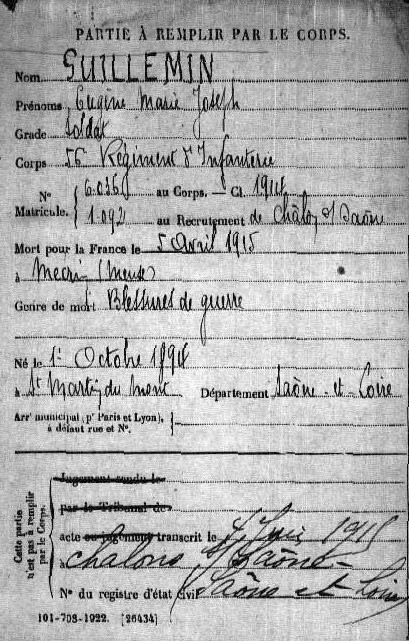 PARTIE À REMPLIR PAR LE CORPS.
Nom GUILLEMIN
Prénoms Eugène Marie Joseph
Grade Soldat
Corps 56 Régiment d'Infanterie
N° Matricule. { 6.036 au Corps. — Cl. 1914
1.092 au Recrutement de Chalon s/ Saône
Mort pour la France le 5 Avril 1915
à (Meuse)
Genre de mort Blessures de guerre
Né le 1er Octobre 1894
à St Martin du Mont Département Saône et Loire
Arrt municipal (pr Paris et Lyon), à défaut rue et N°.
Cette partie n'est pas à remplir par le Corps.
Jugement rendu le
par le Tribunal de
acte ou jugement transcrit le 1915
à Chalons s/ Saône
N° du registre d'état civil Saône et Loire
101-708-1922. [26434]